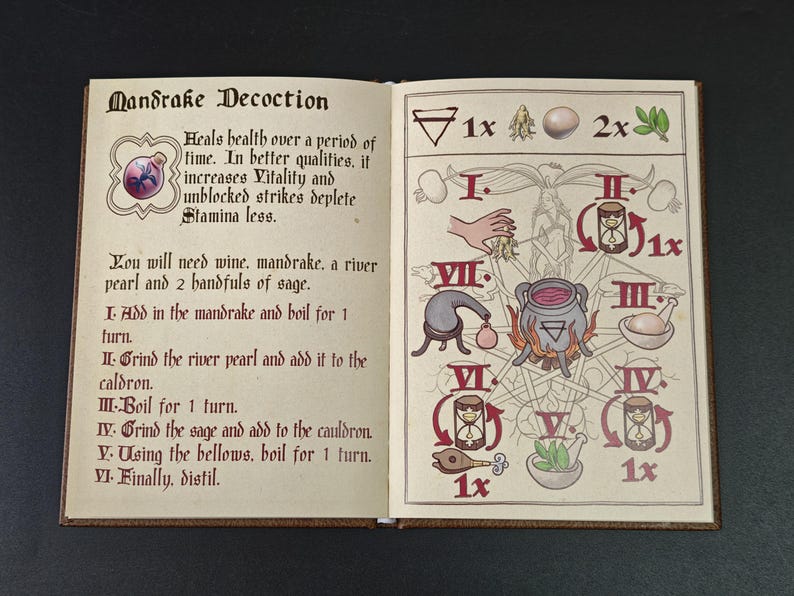 Mandrake Decoction
Heals health over a period of
time. In better qualities, it
increases Vitality and
unblocked strikes deplete
Stamina less.
You will need wine, mandrake, a river
pearl and 2 handfuls of sage.
I. Add in the mandrake and boil for 1
turn.
II. Grind the river pearl and add it to the
caldron.
III. Boil for 1 turn.
IV. Grind the sage and add to the cauldron.
V. Using the bellows, boil for 1 turn.
VI. Finally, distil.
1x 2x
I. II.
1x
VII.
III.
VI. IV.
V.
1x 1x